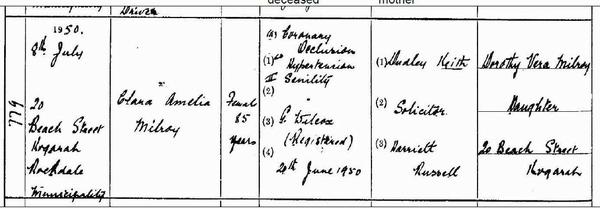 deceased
mother
Driver
779
1950.
8th July
20
Beach Street
Kogarah
Rockdale
Municipality
Clara Amelia
Milroy
Female
85
years
(a) Coronary
Occlusion
(1) Hypertension
II Senility
(2) "
(3) G. Wilcox
(Registered)
(4)
20th June 1950
(1) Dudley Keith
(2) Solicitor.
(3) Harriett
Russell
Dorothy Vera Milroy
Daughter
20 Beach Street
Kogarah